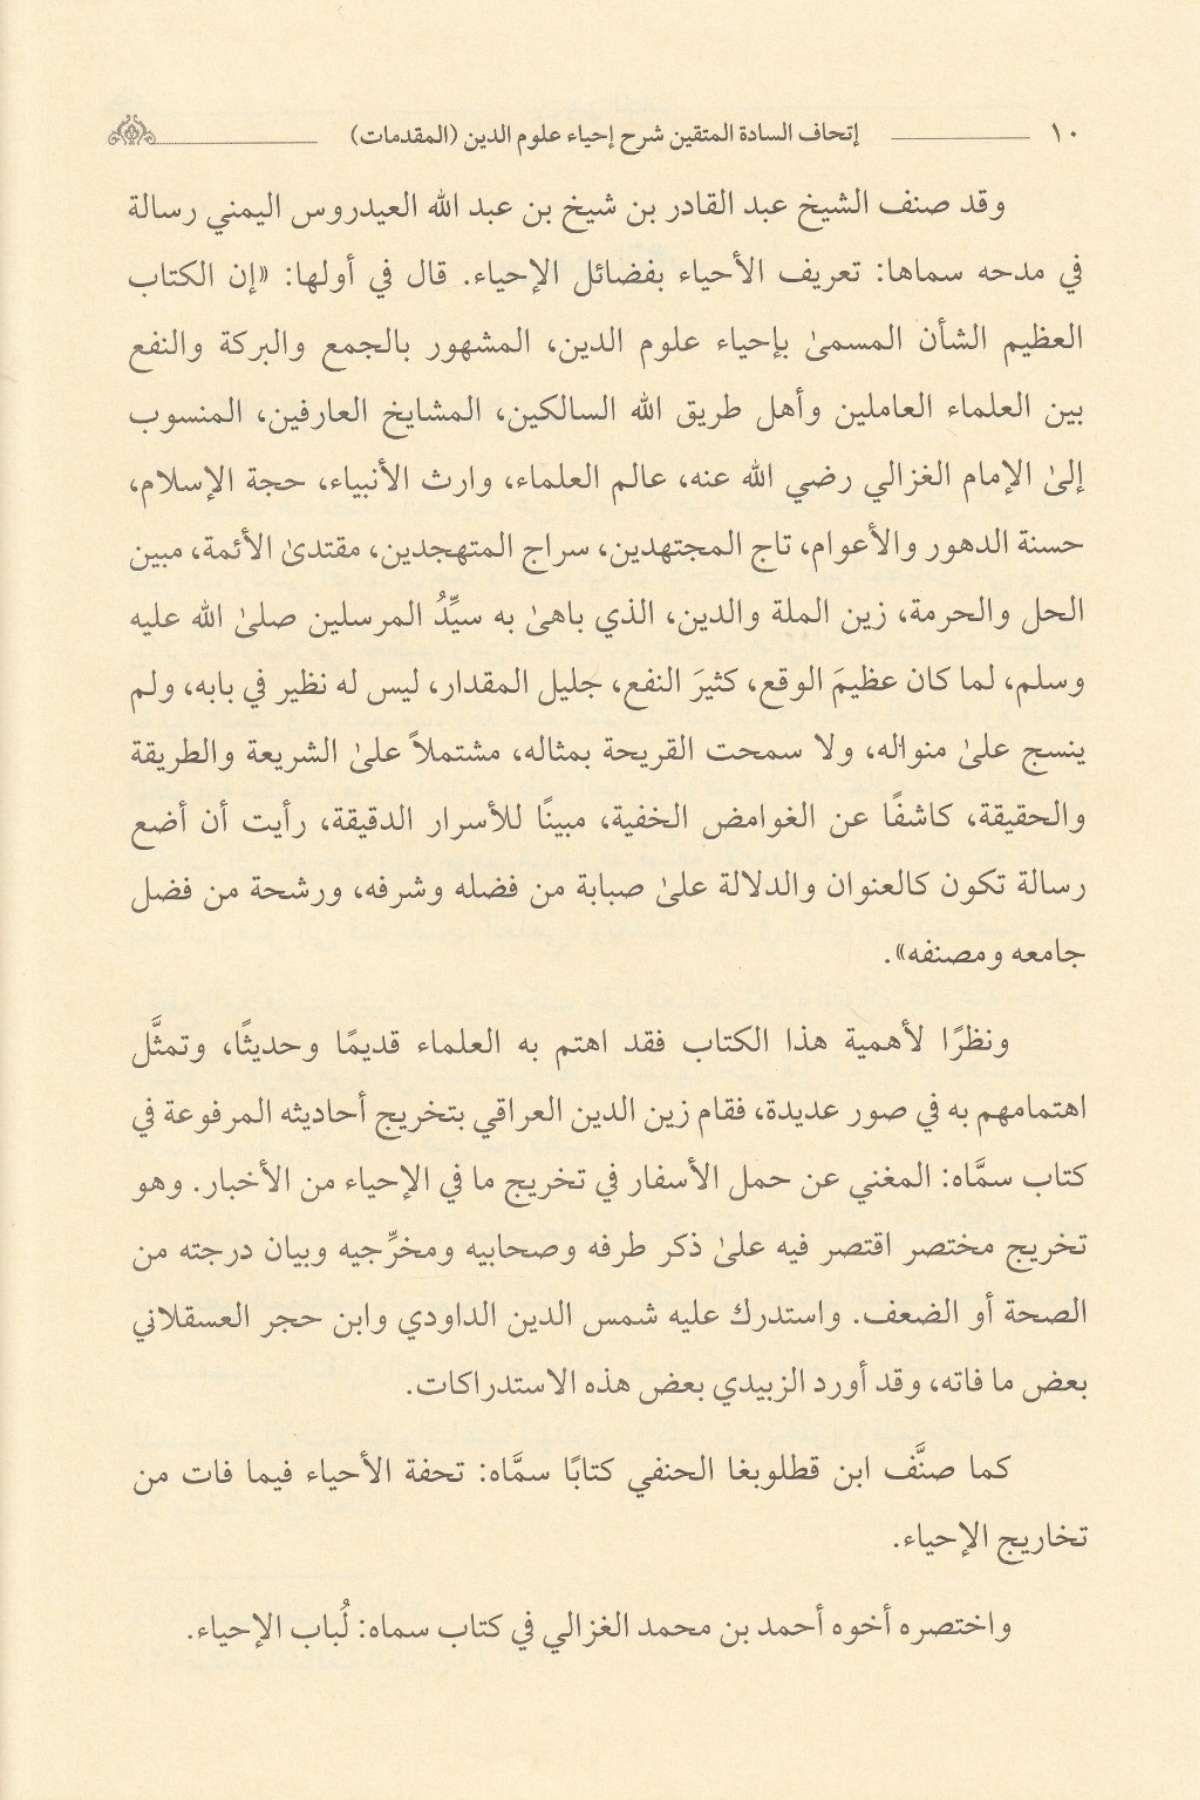 ١٠ إتحاف السادة المتقين شرح إحياء علوم الدين (المقدمات)
وقد صنف الشيخ عبد القادر بن شيخ بن عبد الله العيدروس اليمني رسالة
في مدحه سماها: تعريف الأحياء بفضائل الإحياء. قال في أولها: «إن الكتاب
العظيم الشأن المسمىٰ بإحياء علوم الدين، المشهور بالجمع والبركة والنفع
بين العلماء العاملين وأهل طريق الله السالكين، المشايخ العارفين، المنسوب
إلىٰ الإمام الغزالي رضي الله عنه، عالم العلماء، وارث الأنبياء، حجة الإسلام،
حسنة الدهور والأعوام، تاج المجتهدين، سراج المتهجدين، مقتدىٰ الأئمة، مبين
الحل والحرمة، زين الملة والدين، الذي باهىٰ به سيِّدُ المرسلين صلىٰ الله عليه
وسلم، لما كان عظيمَ الوقع، كثيرَ النفع، جليل المقدار، ليس له نظير في بابه، ولم
ينسج علىٰ منواله، ولا سمحت القريحة بمثاله، مشتملاً علىٰ الشريعة والطريقة
والحقيقة، كاشفًا عن الغوامض الخفية، مبينًا للأسرار الدقيقة، رأيت أن أضع
رسالة تكون كالعنوان والدلالة علىٰ صبابة من فضله وشرفه، ورشحة من فضل
جامعه ومصنفه».
ونظرًا لأهمية هذا الكتاب فقد اهتم به العلماء قديمًا وحديثًا، وتمثَّل
اهتمامهم به في صور عديدة، فقام زين الدين العراقي بتخريج أحاديثه المرفوعة في
كتاب سمَّاه: المغني عن حمل الأسفار في تخريج ما في الإحياء من الأخبار. وهو
تخريج مختصر اقتصر فيه علىٰ ذكر طرفه وصحابيه ومخرِّجيه وبيان درجته من
الصحة أو الضعف. واستدرك عليه شمس الدين الداودي وابن حجر العسقلاني
بعض ما فاته، وقد أورد الزبيدي بعض هذه الاستدراكات.
كما صنَّف ابن قطلوبغا الحنفي كتابًا سمَّاه: تحفة الأحياء فيما فات من
تخاريج الإحياء.
واختصره أخوه أحمد بن محمد الغزالي في كتاب سماه: لُباب الإحياء.